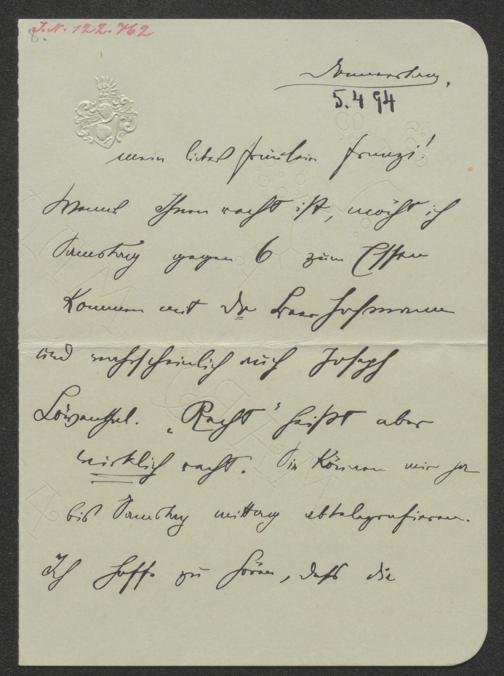 J.N. 122.762
8.
Donnerstag.
5.4 94
mein liebes Fräulein Franzi!
Wenns Ihnen recht ist, möcht ich
Samstag gegen 6 zum Essen
kommen mit Beer-Hofmann
und wahrscheinlich auch Joseph
„Recht“ heißt aber
wirklich recht. Sie können mir ja
bis Samstag mittag abtelegrafieren.
Ich hoffe zu hören, daß die